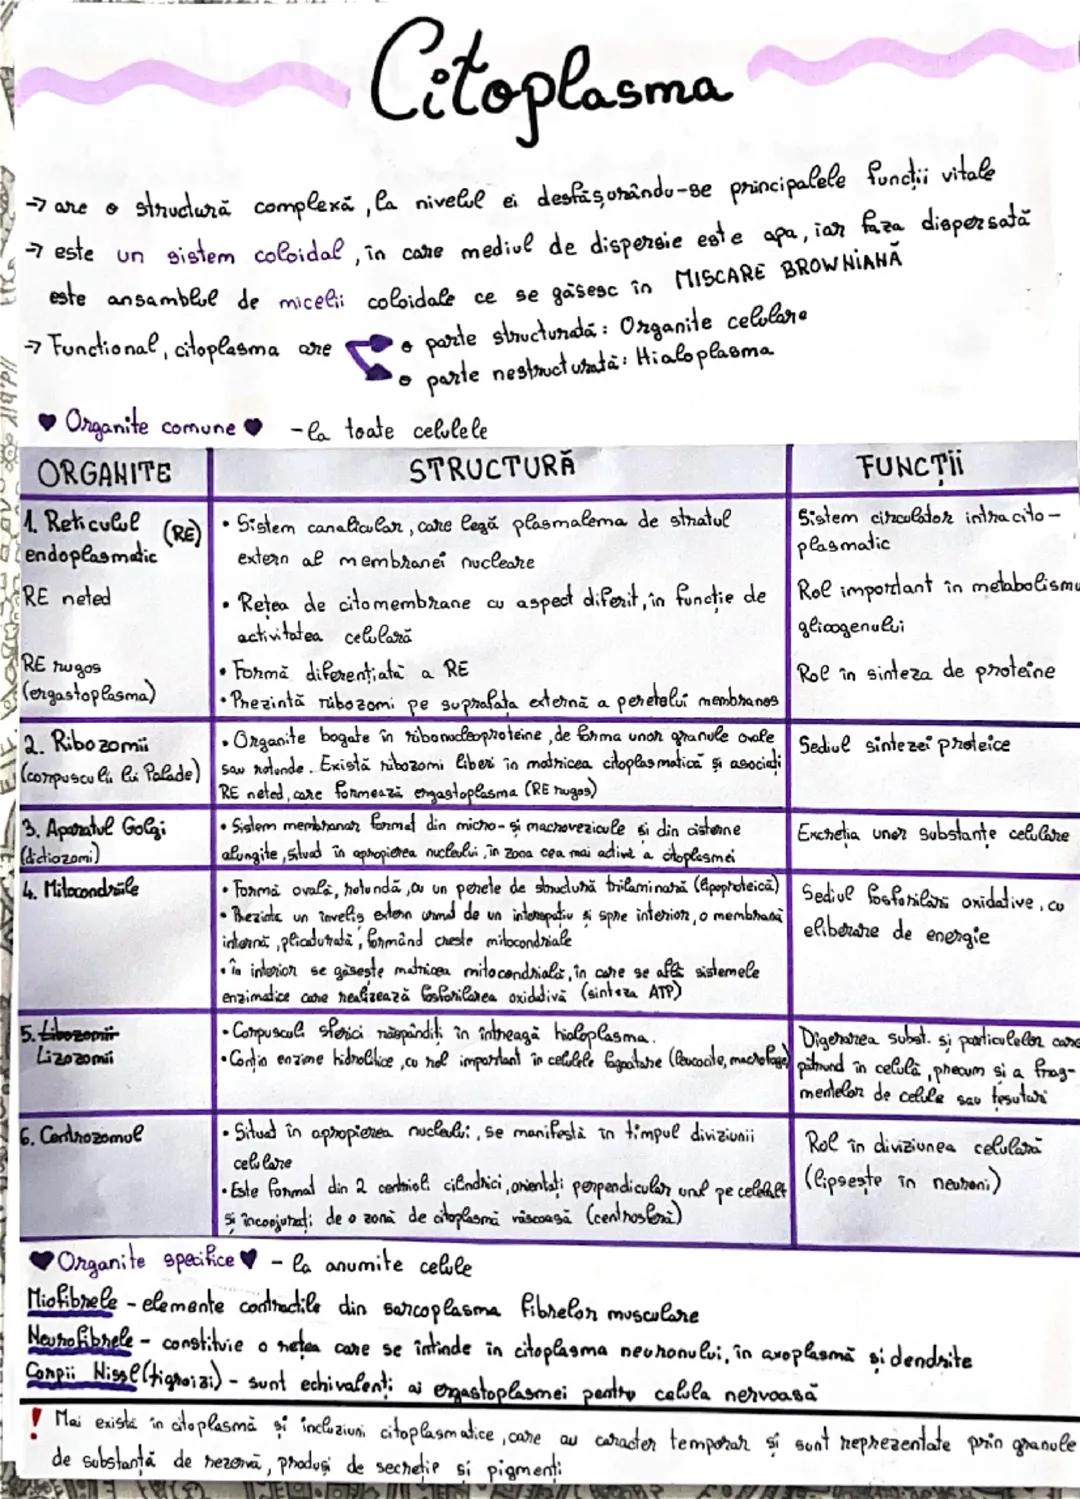 Citoplasma
→ are o structură complexă, la nivelul ei desfășurându-se principalele funcții vitale
→ este un sistem coloidal, în care mediul de dispersie este apa, iar faza dispersată
este ansamblul de micelii coloidale ce se găsesc în MISCARE BROWNIANĂ
→ Functional, citoplasma are
o parte structurată: Organite celulare
o parte nestructurată: Hialoplasma
♥ Organite comune ♥ - la toate celulele
ORGANITE STRUCTURĂ FUNCȚII
1. Reticulul endoplasmatic (RE)
• Sistem canalicular, care legă plasmalema de stratul
extern al membranei nucleare
Sistem circulator intracito-
plasmatic
RE neted
• Rețea de citomembrane cu aspect diferit, în funcție de
activitatea celulară
Rol important în metabolismu
glicogenului
RE rugos
(ergastoplasma)
• Formă diferențiată a RE
• Prezintă ribozomi pe suprafața externă a peretelui membranos
Rol în sinteza de proteine
2. Ribozomii
(corpusculii lui Palade)
• Organite bogate în ribonucleoproteine, de forma unor granule ovale
sau rotunde. Există ribozomi liberi în matricea citoplasmatică și asociați
RE neted, care formează ergastoplasma (RE rugos)
Sediul sintezei proteice
3. Aparatul Golgi
(dictiozomi)
• Sistem membranar format din micro- și macrovezicule și din cisterne
alungite, situat în apropierea nucleului, în zona cea mai activă a citoplasmei
Excreția unor substanțe celulare
4. Mitocondriile
• Formă ovală, rotundă, cu un perete de structură trilaminară (lipoproteică)
• Prezintă un înveliș extern urmat de un interspațiu și spre interior, o membrană
internă, plicaturată, formând creste mitocondriale
• în interior se găsește matricea mitocondrială, în care se află sistemele
enzimatice care realizează fosforilarea oxidativă (sinteza ATP)
Sediul fosforilării oxidative, cu
eliberare de energie
5. Libozomii
Lizozomii
• Corpusculi sferici răspândiți în întreagă hialoplasma.
• Conțin enzime hidrolitice, cu rol important în celulele fagocitare (leucocite, macrofage)
Digerarea subst. și particulelor care
pătrund în celulă, precum și a frag-
mentelor de celule sau țesuturi
6. Centrozomul
• Situat în apropierea nucleului, se manifestă în timpul diviziunii
celulare
• Este format din 2 centrioli cilindrici, orientați perpendicular unul pe celălalt
și înconjurați de o zonă de citoplasmă vâscoasă (centrosferă)
Rol în diviziunea celulară
(lipsește în neuroni)
♥ Organite specifice ♥ - la anumite celule
Miofibrele - elemente contractile din sarcoplasma fibrelor musculare
Neurofibrele - constituie o rețea care se întinde în citoplasma neuronului, în axoplasmă și dendrite
Corpii Nissl (tigroizi) - sunt echivalenți ai ergastoplasmei pentru celula nervoasă
! Mai există în citoplasmă și incluziuni citoplasmatice, care au caracter temporar și sunt reprezentate prin granule
de substanță de rezervă, produși de secreție și pigmenți